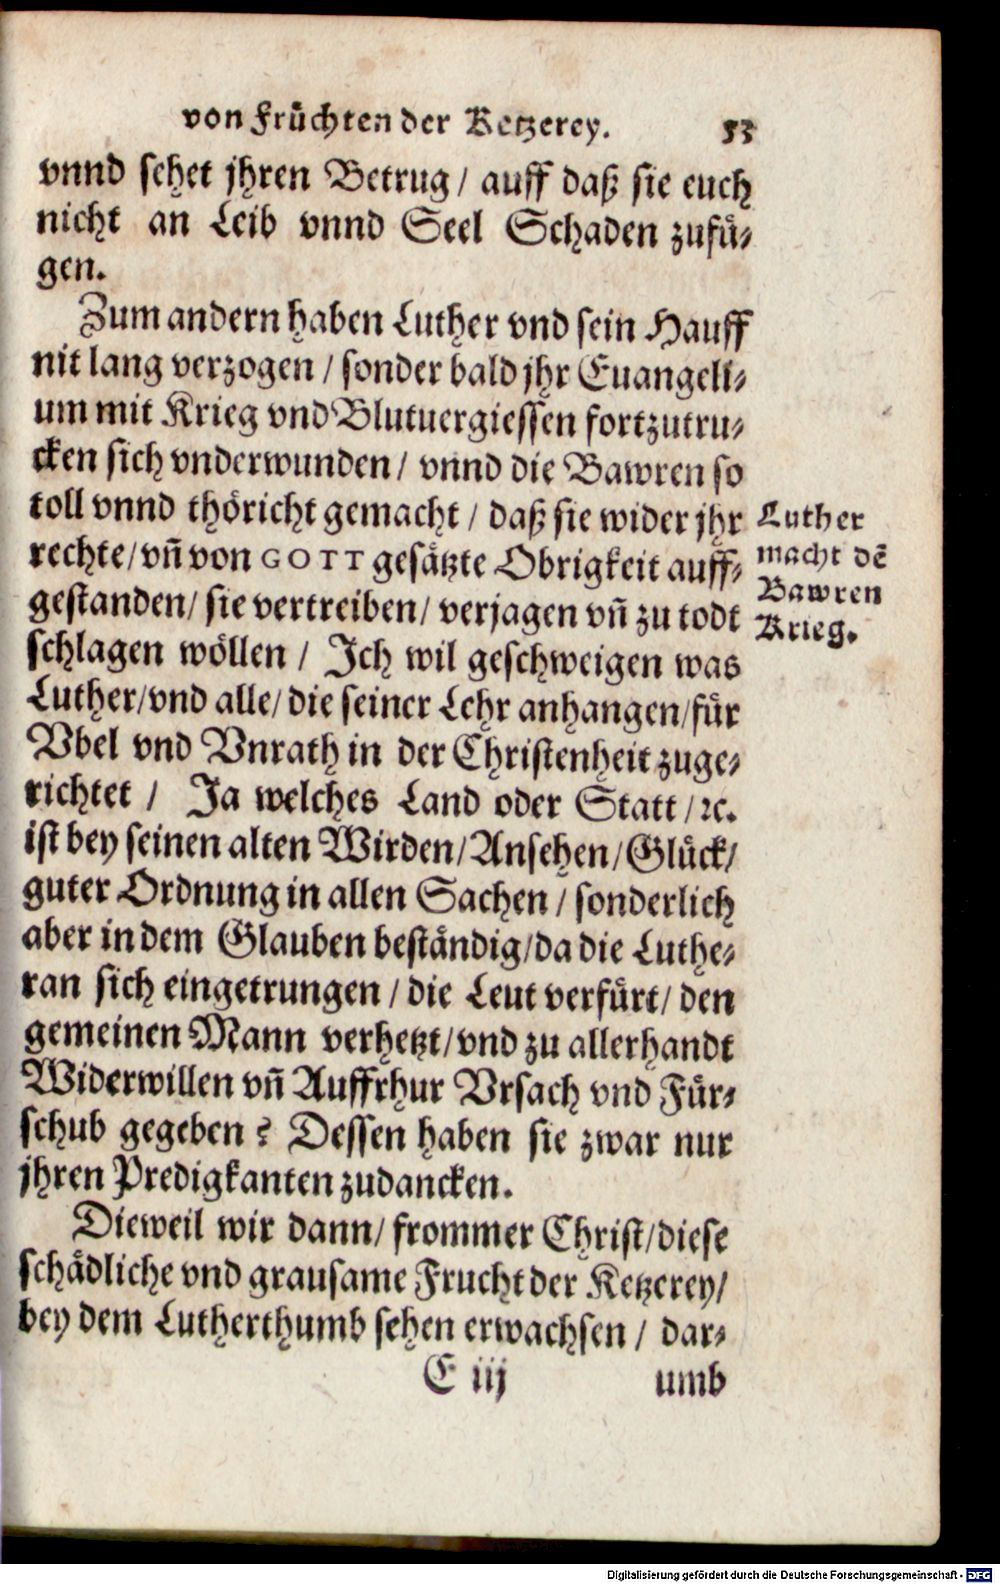 von Früchten der Ketzerey. 53
vnnd sehet jhren Betrug / auff daß sie euch
nicht an Leib vnnd Seel Schaden zufü-
gen.
Zum andern haben Luther vnd sein Hauff
nit lang verzogen / sonder bald jhr Euangeli-
um mit Krieg vnd Blutuergiessen fortzutru-
cken sich vnderwunden / vnnd die Bawren so
toll vnnd thöricht gemacht / daß sie wider jhr
rechte / vñ von GOTT gesätzte Obrigkeit auff-
gestanden / sie vertreiben / verjagen vñ zu todt
schlagen wöllen / Ich wil geschweigen was
Luther / vnd alle / die seiner Lehr anhangen / für
Vbel vnd Vnrath in der Christenheit zuge-
richtet / Ja welches Land oder Statt / ꝛc.
ist bey seinen alten Wirden / Ansehen / Glück /
guter Ordnung in allen Sachen / sonderlich
aber in dem Glauben beständig / da die Luthe-
ran sich eingetrungen / die Leut verfürt / den
gemeinen Mann verhetzt / vnd zu allerhandt
Widerwillen vñ Auffrhur Vrsach vnd Für-
schub gegeben? Dessen haben sie zwar nur
jhren Predigkanten zudancken.
Dieweil wir dann / frommer Christ / diese
schädliche vnd grausame Frucht der Ketzerey /
bey dem Lutherthumb sehen erwachsen / dar-
E iij umb
Luther
macht dẽ
Bawren
Krieg.
Digitalisierung gefördert durch die Deutsche Forschungsgemeinschaft - DFG